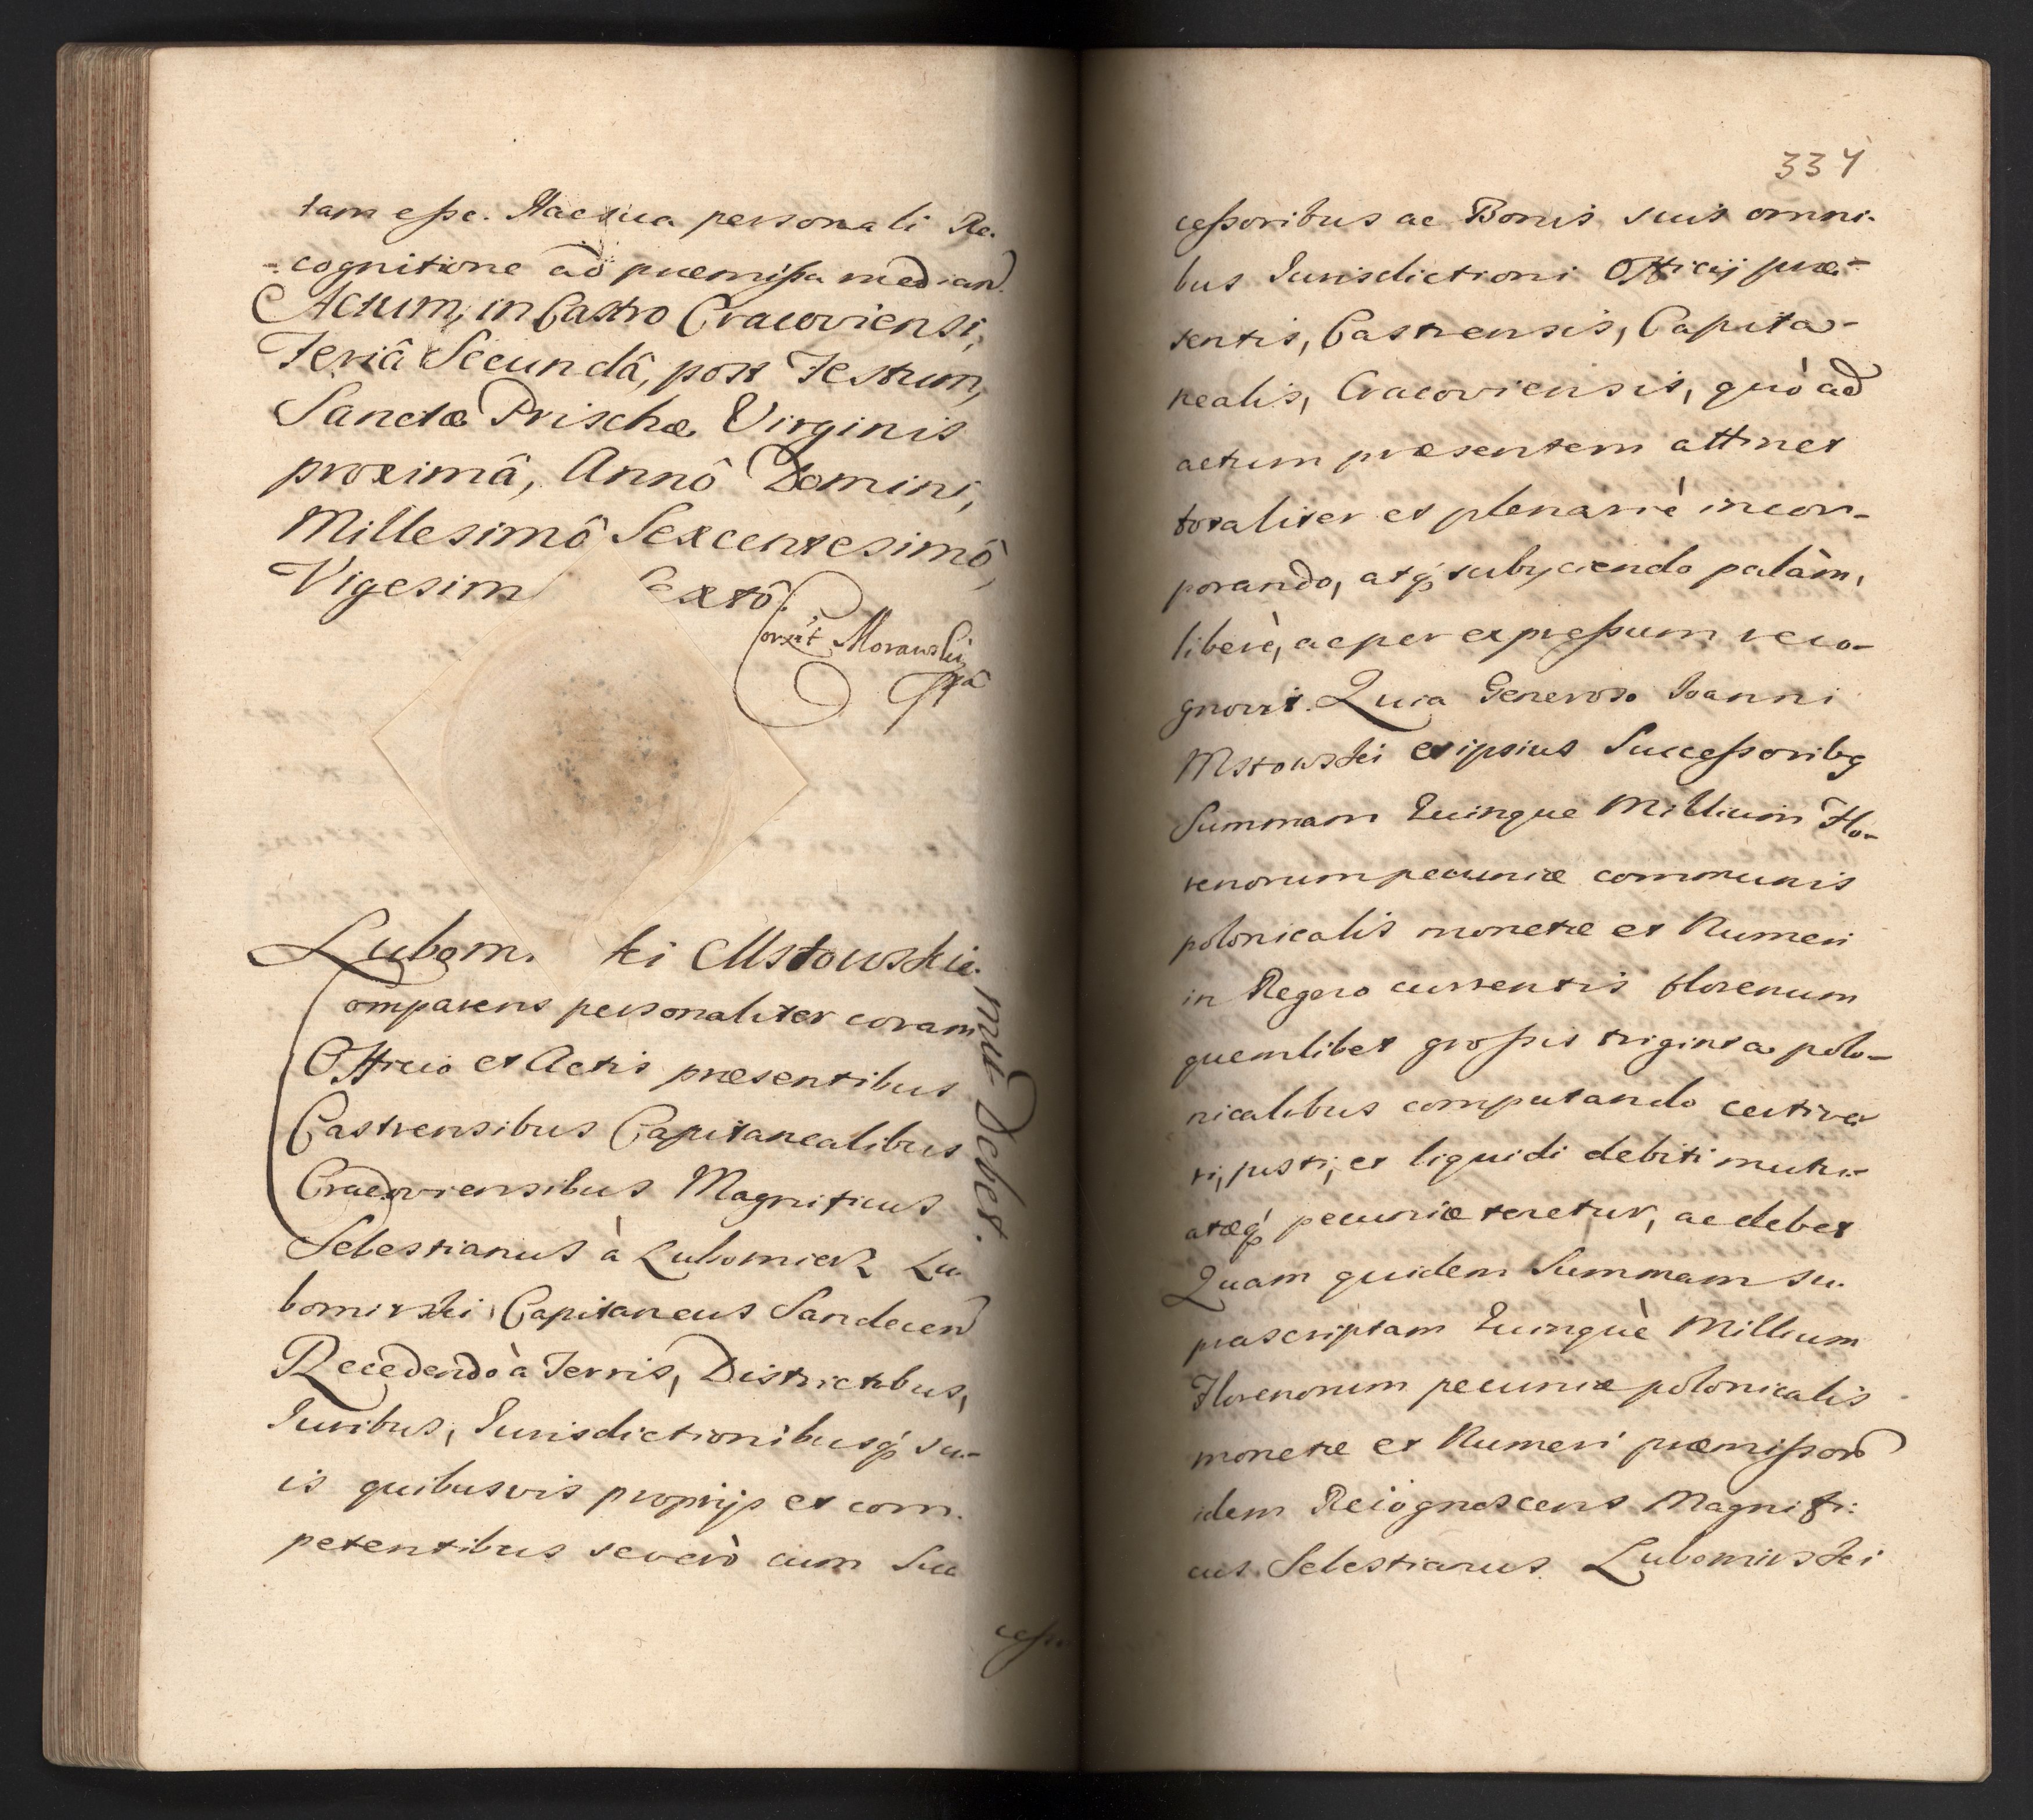 tam esse. Hac sua personali Re-
-cognitione ad præmissa median
Actum, in Castro Cracoviensi,
Feriâ Secundâ, post Festum,
Sanctæ Prischæ Virginis
proximâ, Annô Domini,
Millesimô Sexcentesimô,
Vigesim Sextô.
Morawski
Lubom. ki Mstowskie-
mu Debet.
Comparens personaliter coram
Officio et Actis præsentibus
Castrensibus Capitanealibus
Cracoviensibus Magnificus
Sebestianus à Lubomierz Lu-
bomirski Capitaneus Sandecen
Recedendo à Terris, Districtibus,
Iuribus, Iurisdictionibusq; su-
is quibusvis proprijs et com-
petentibus se verò cum Suc
cesso
334
cessoribus ac Bonis suis omni-
bus Iurisdictioni Officij præ-
sentis, Castrensis, Capita-
nealis, Cracoviensis, quò ad
actum præsentem attinet
totaliter et plenariè incor-
porando, atq; subijciendo palàm,
liberè, ac per expressum reco-
gnovit. Quia Generoso Ioanni
Mstowski et ipsius Successoribq
Summam Quinque Millium Flo-
renorum pecuniæ communis
polonicalis monetæ et Numeri
in Regno currentis florenum
quemlibet grossis triginta polo-
nicalibus computando certi ve-
ri, justi, et liquidi debiti mutu-
atæq; pecuniæ tenetur, ac debet
Quam quidem Summam su-
prascriptam Quinquè Millium
Florenorum pecuniæ polonicalis
monetæ et Numeri præmissorũ
idem Recognoscens Magnifi-
cus Sebestianus Lubomirski